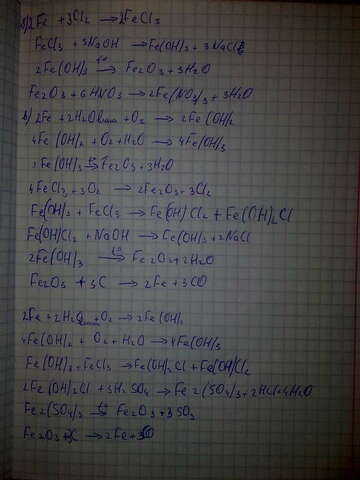 а) 2Fe + 3Cl2 → 2FeCl3
FeCl3 + 3NaOH → Fe(OH)3 + 3NaCl
2Fe(OH)3 t° → Fe2O3 + 3H2O
Fe2O3 + 6HNO3 → 2Fe(NO3)3 + 3H2O
в) 2Fe + 2H2O + O2 → 2Fe(OH)2
4Fe(OH)2 + O2 + H2O → 4Fe(OH)3
Fe(OH)3 → Fe2O3 + 3H2O
4FeCl3 + 3O2 → 2Fe2O3 + 3Cl2
Fe(OH)2 + FeCl3 → Fe(OH)Cl2 + Fe(OH)2Cl
Fe(OH)Cl2 + NaOH → Fe(OH)3 + 2NaCl
2Fe(OH)3 t° → Fe2O3 + 2H2O
Fe2O3 + 3C → 2Fe + 3CO
2Fe + 2H2O + O2 → 2Fe(OH)2
4Fe(OH)2 + O2 + H2O → 4Fe(OH)3
Fe(OH)3 + FeCl3 → Fe(OH)2Cl + Fe(OH)Cl2
2Fe(OH)2Cl + 3H2SO4 → Fe2(SO4)3 + 2HCl + 4H2O
Fe2(SO4)3 t° → Fe2O3 + 3SO3
Fe2O3 + 3C → 2Fe + 3CO